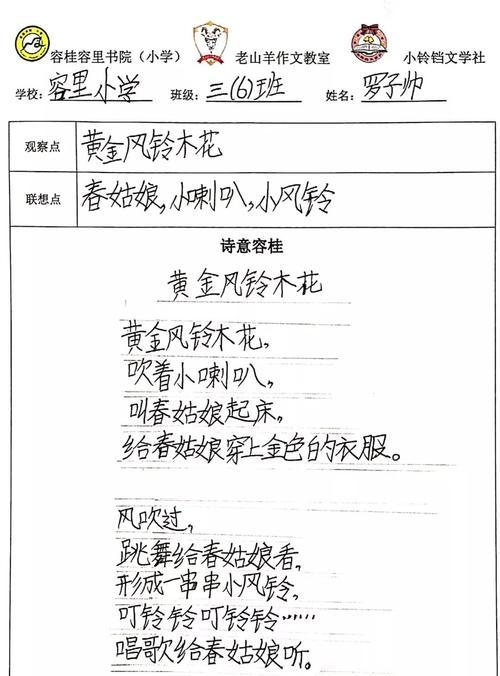 容桂容里书院（小学） 老山羊作文教室 小铃铛文学社
学校：容里小学 班级：三(6)班 姓名：罗子帅
观察点 黄金风铃木花
联想点 春姑娘，小喇叭，小风铃
诗意容桂
黄金风铃木花
黄金风铃木花，
吹着小喇叭，
叫春姑娘起床，
给春姑娘穿上金色的衣服。
风吹过，
跳舞给春姑娘看，
形成一串串小风铃，
叮铃铃叮铃铃……
唱歌给春姑娘听。